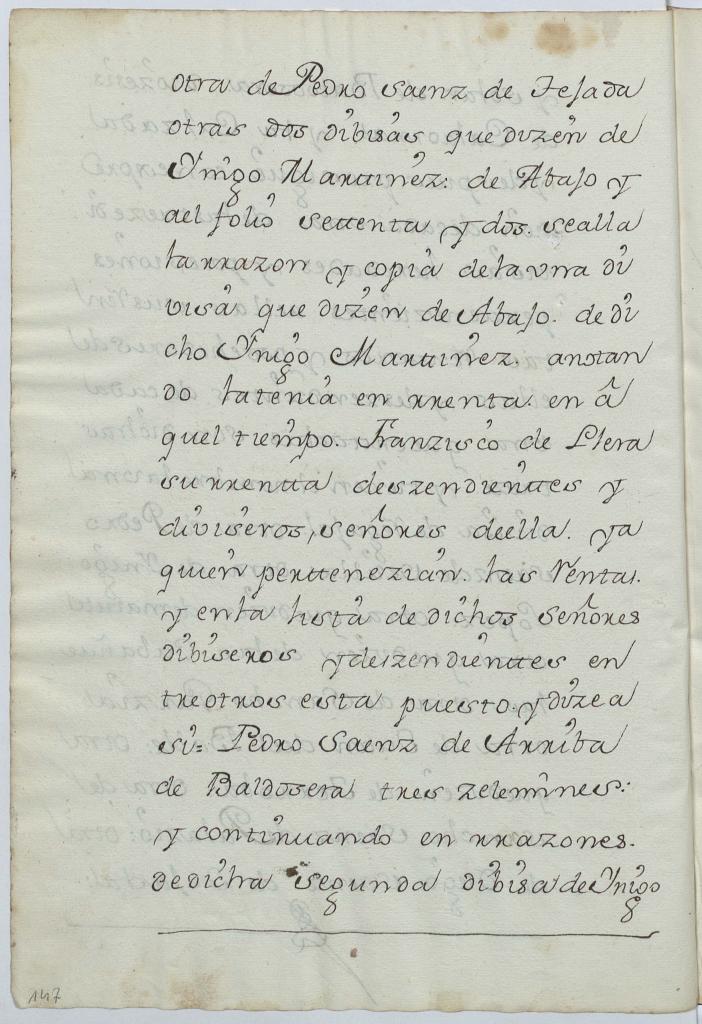 otra de Pedro Saenz de Tejada
otras dos dibisas que dizen de
Ynigo Marttinez: de Abajo y
ael folio settenta y dos. sealla
la rrazon y copia de la vna di
visa que dizen de Abajo. de di
cho Ynigo Marttinez. anotan
do la tenia en rrenta. en a
quel tiempo. Franzisco de Llera
su rrentta deszendienttes y
diviseros, señores deella. ya
quien perttenezian. las Ventas.
y enla lista de dichos señores
dibiseros ydeszendienttes en
tre otros esta puesto. y dize a
si= Pedro Saenz de Arriba
de Baldosera tres zelemines:
y continuando en rrazones.
de dicha segunda dibisa de Ynigo
147